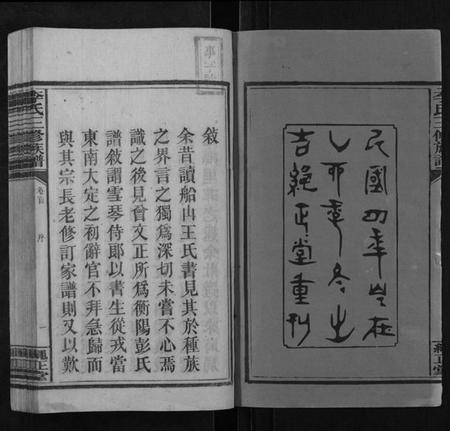 民國四年岁在
乙卯季冬之
吉繩正堂重刊
敘
余昔讀船山王氏書見其於種族
之界言之獨爲深切未嘗不心焉
識之後見曾文正所爲衡陽彭氏
譜敘謂雪琴侍郎以書生從戎當
東南大定之初辭官不拜急歸而
與其宗長老修訂家譜則又以歎
李氏三修族譜
卷首
序
一
繩正堂